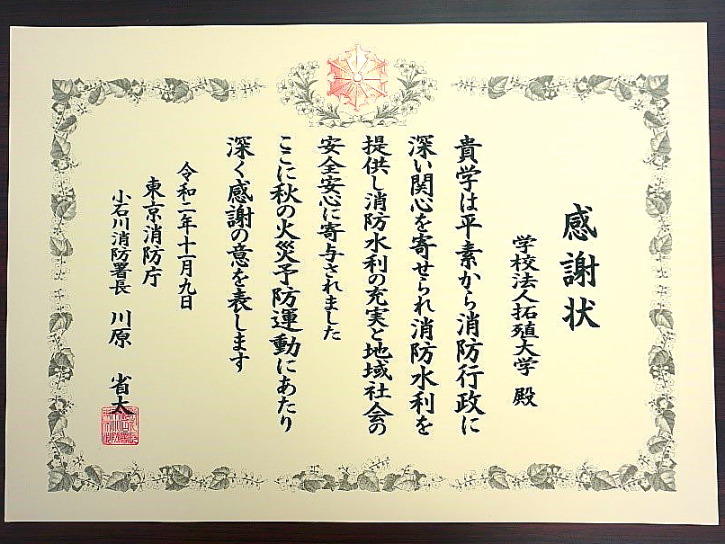 感謝状
学校法人拓殖大学 殿
貴学は平素から消防行政に
深い関心を寄せられ消防水利を
提供し消防水利の充実と地域社会の
安全安心に寄与されました
ここに秋の火災予防運動にあたり
深く感謝の意を表します
令和二年十一月九日
東京消防庁
小石川消防署長 川原 省太